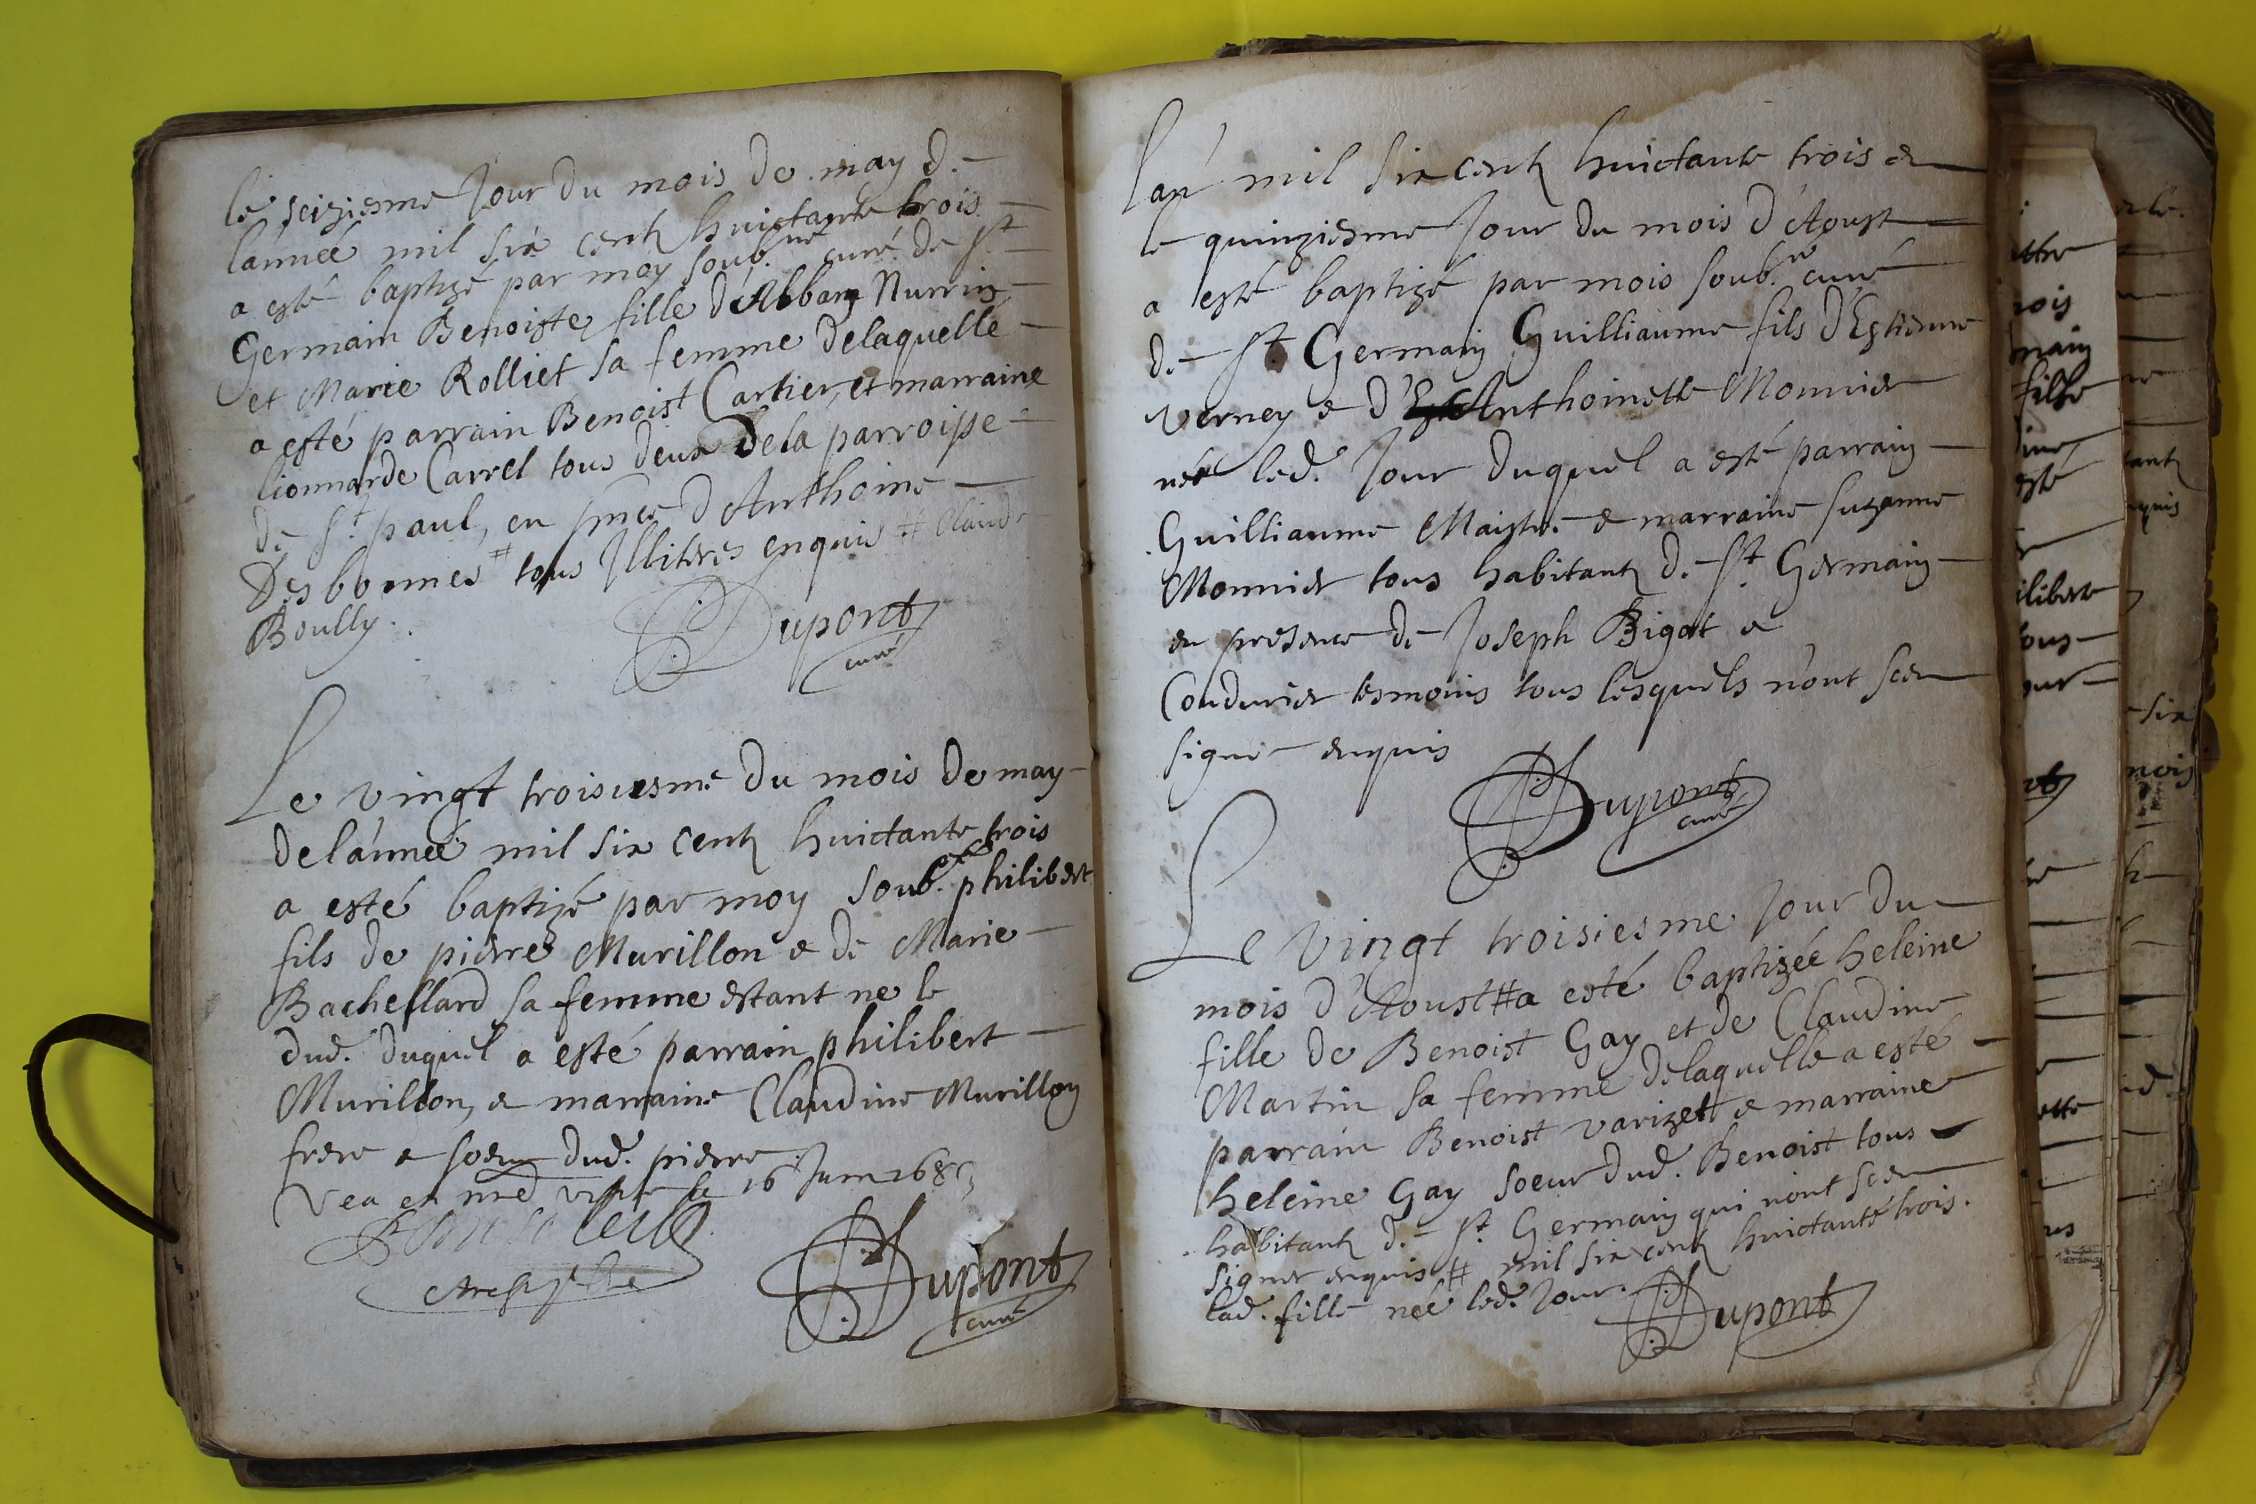 le seiziesme Jour du mois de may de
l'année mil six centz huictante trois
a esté baptizé par moy soub.né curé de St
Germain Benoiste fille d'Abban Nurrin
et Marie Rolliet sa femme delaquelle
a esté parrain Benoist Cartier, et marraine
lionnarde Carrel tous deux dela parroisse
de St paul, en pnce d'Anthoine
Desbonnes # tous Illitéres enquis # Claude
Boully.
Dupont
curé
Le vingt troisiesme du mois de may
de l'année mil six centz huictante trois
a esté baptizé par moy soub. philibert
fils de pierre Murillon e de Marie
Bachellard sa femme estant ne le
dud. duquel a esté parrain philibert
Murillon, e marraine Claudine Murillon
frere e soeur dud. pierre
Veu en visite le 16 Juin 1683
Dupont
curé
l'an mil six centz huictante trois e
le quinziesme Jour du mois d'Aoust
a esté baptizé par mois soub.né curé
de St Germain Guilliaume fils d'Estienne
verney e d'Anthoinette Monnier
né led. Jour duquel a esté parrain
Guilliaume Maistre e marraine suzanne
Monnier tous habitantz de St Germain
en presence de Joseph Bigot e
Coudurier tesmoins tous lesquels n'ont sceu
signer enquis
Dupont
curé
Le vingt troisiesme Jour du
mois d'Aoust # a esté baptizée heleine
fille de Benoist Gay et de Claudine
Martin sa femme delaquelle a esté
parrain Benoist varizet e marraine
heleine Gay soeur dud. Benoist tous
habitantz de St Germain qui n'ont sceu
signer enquis # mil six centz huictante trois.
lad. fille née led. Jour.
Dupont